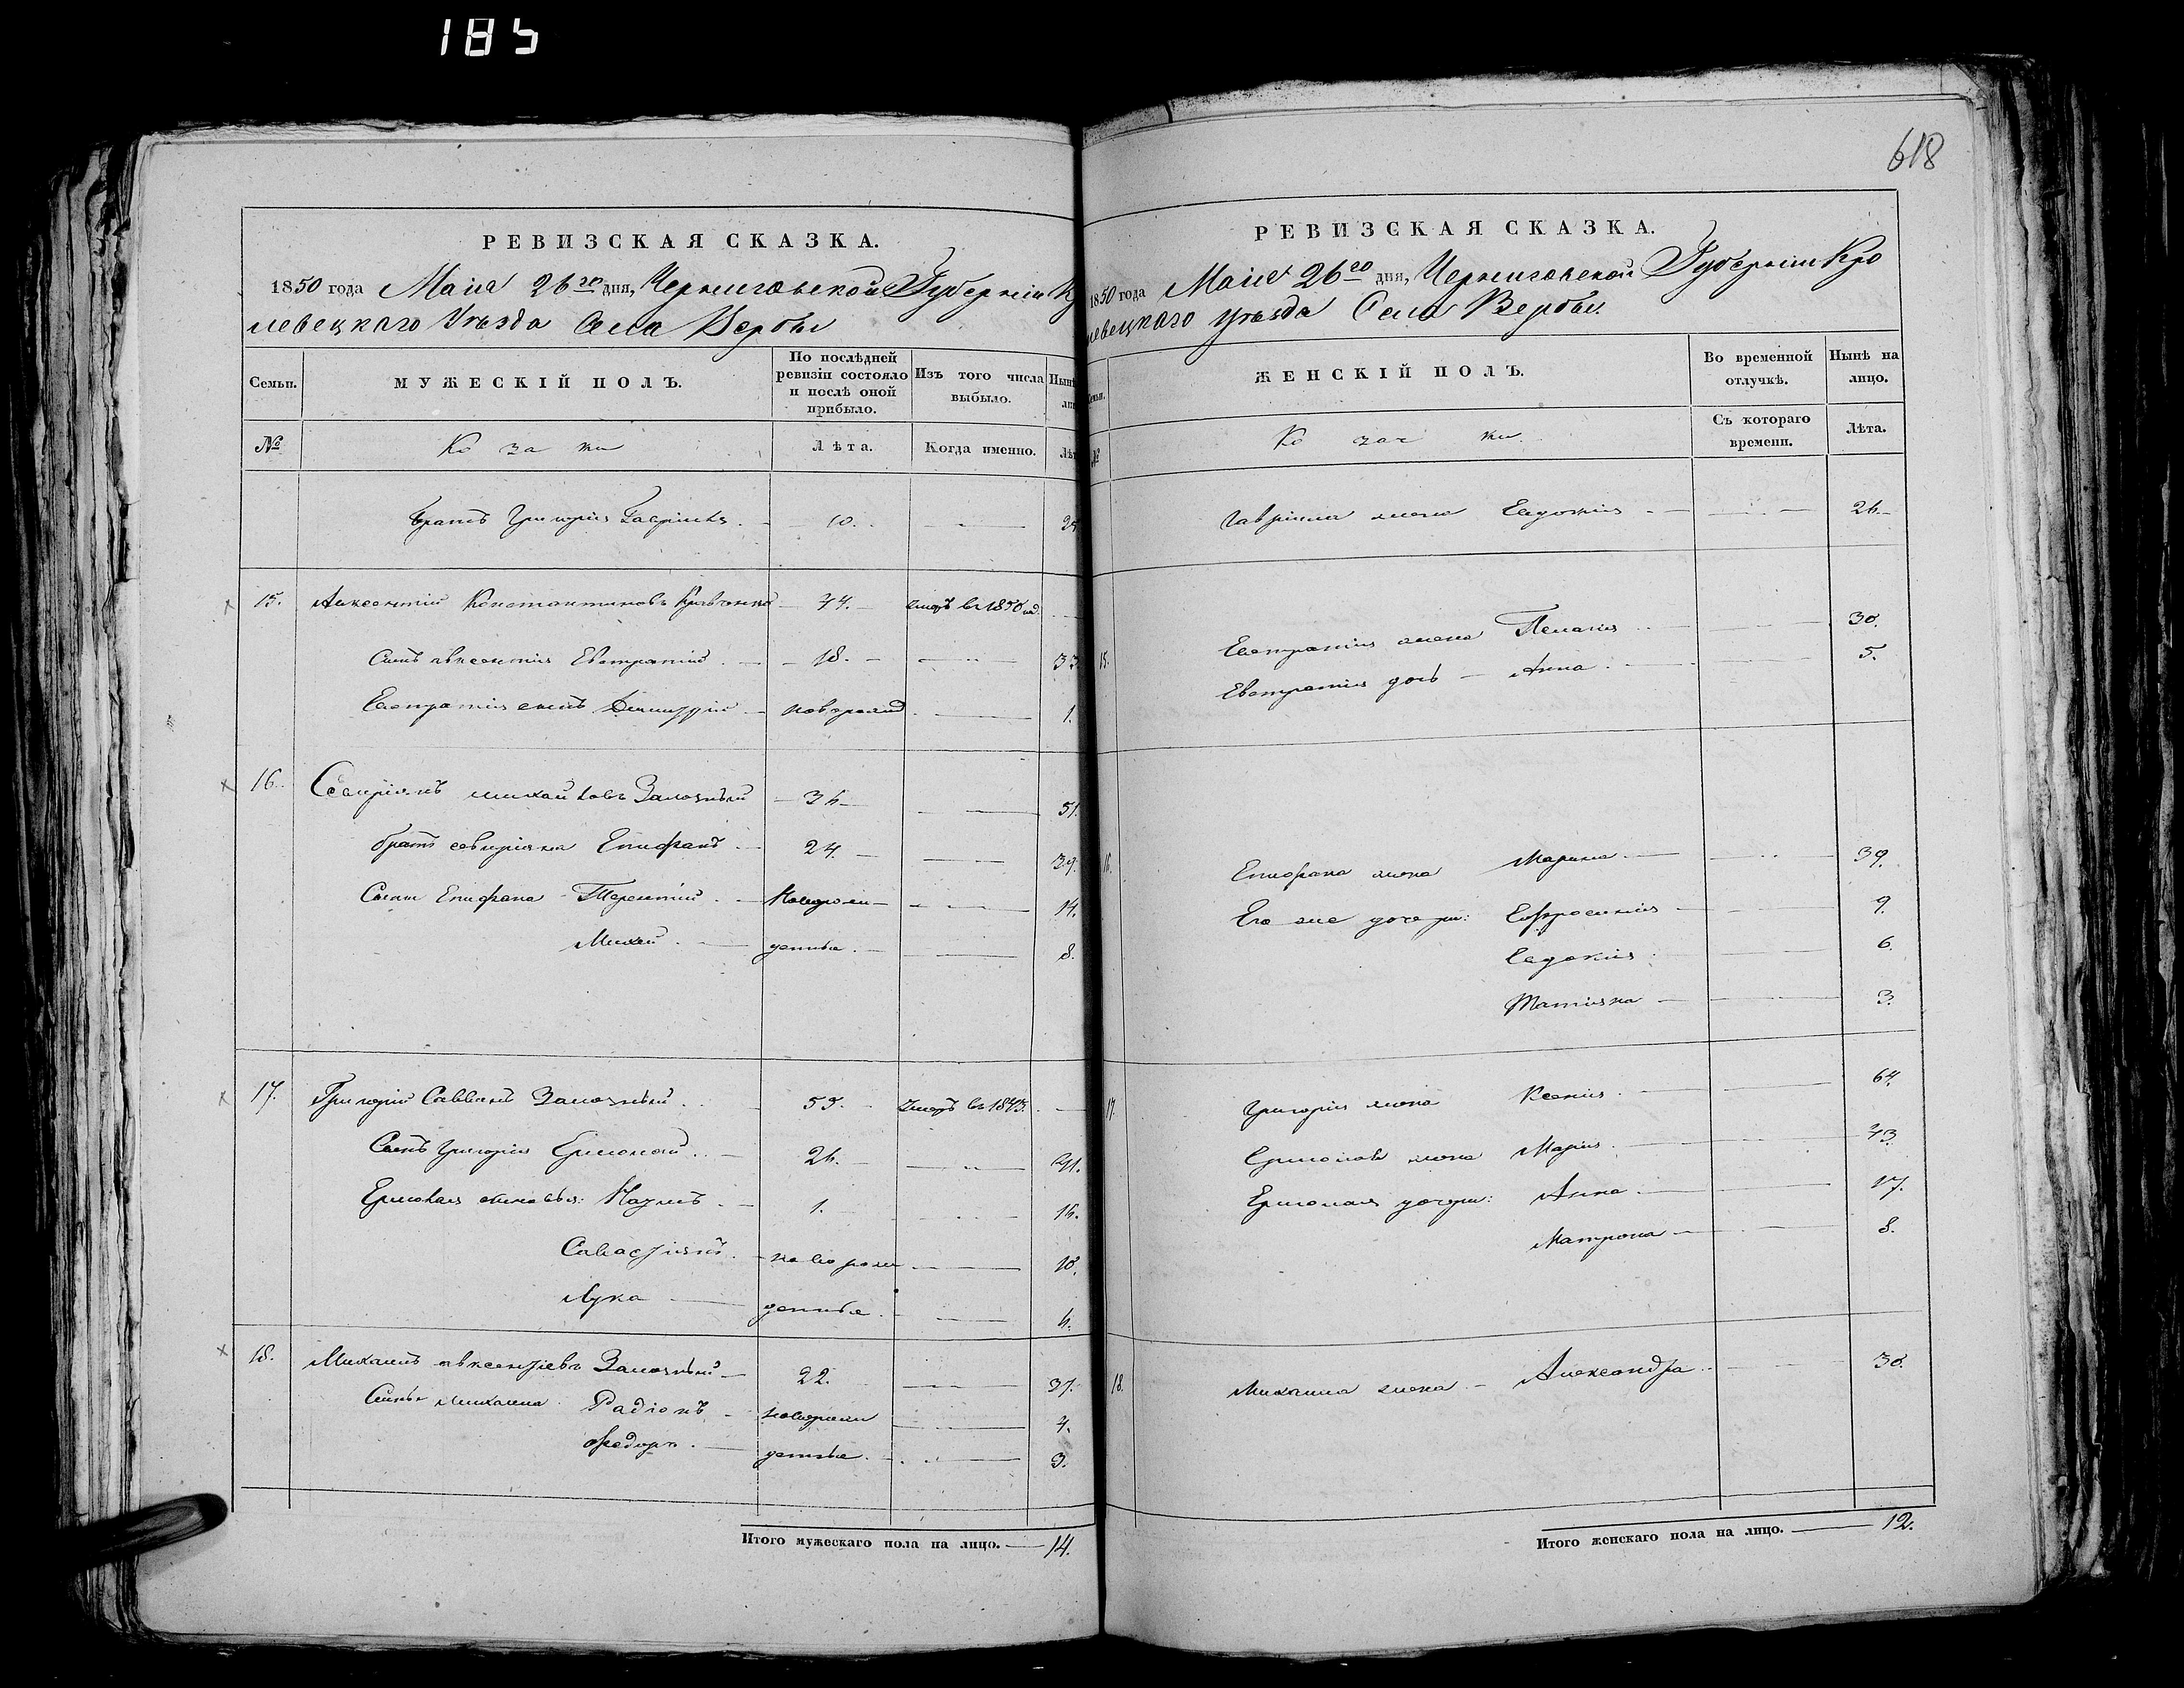 185
РЕВИЗСКАЯ СКАЗКА.
1850 года Маія 26го дня, Черниговской Губерніи К
левецкаго Уѣзда Села Вербы
Семьи.
МУЖЕСКІЙ ПОЛЪ.
По послѣдней ревизіи состояло и послѣ оной прибыло.
Изъ того числа выбыло.
№
Козаки
Лѣта.
Когда именно.
братъ Григорія Гавріилъ. 10.
15. Авксентій Константиновъ Кравченко 74. умеръ въ 1850 год.
Сынъ авксентія Евстратій 18. 33
Евстратія сынъ Димитрій новорожд 1.
16. Севиріянъ михайловъ Залозный 36 51.
братъ севиріяна Епифанъ 24. 39.
Сыны Епифана Терентій Новорож 14.
Михей денные 8.
17. Григорій Саввинъ Залозный 55. Умеръ въ 1843.
Сынъ Григорія Ермолай 26. 41.
Ермолая сыновья: Наумъ 1. 16.
Савастіянъ новорож 10.
Лука денные 6.
18. Михаилъ авксентіевъ Залозный 22. 37.
Сыны михаила Радіонъ новорож 4.
Федоръ денные 3.
Итого мужескаго пола на лицо. 14.
618
РЕВИЗСКАЯ СКАЗКА.
1850 года Маія 26го дня, Черниговской Губерніи Кро
левецкаго уѣзда Села Вербы.
ЖЕНСКІЙ ПОЛЪ.
Во временной отлучкѣ.
Нынѣ на лицо.
№
Козачки
Съ котораго времени.
Лѣта.
Гавріила жена Евдокія 26.
15. Евстратія жена Пелагія 30.
Евстратія дочь Анна 5.
16. Епифана жена Марина 39.
Его же дочери: Ефросинія 9.
Евдокія 6.
Татіяна 3.
17. Григорія жена Ксенія 64.
Ермолая жена Марія 43.
Ермолая дочери: Анна 17.
Матрона 8.
18. Михаила жена Александра 30.
Итого женскаго пола на лицо. 12.